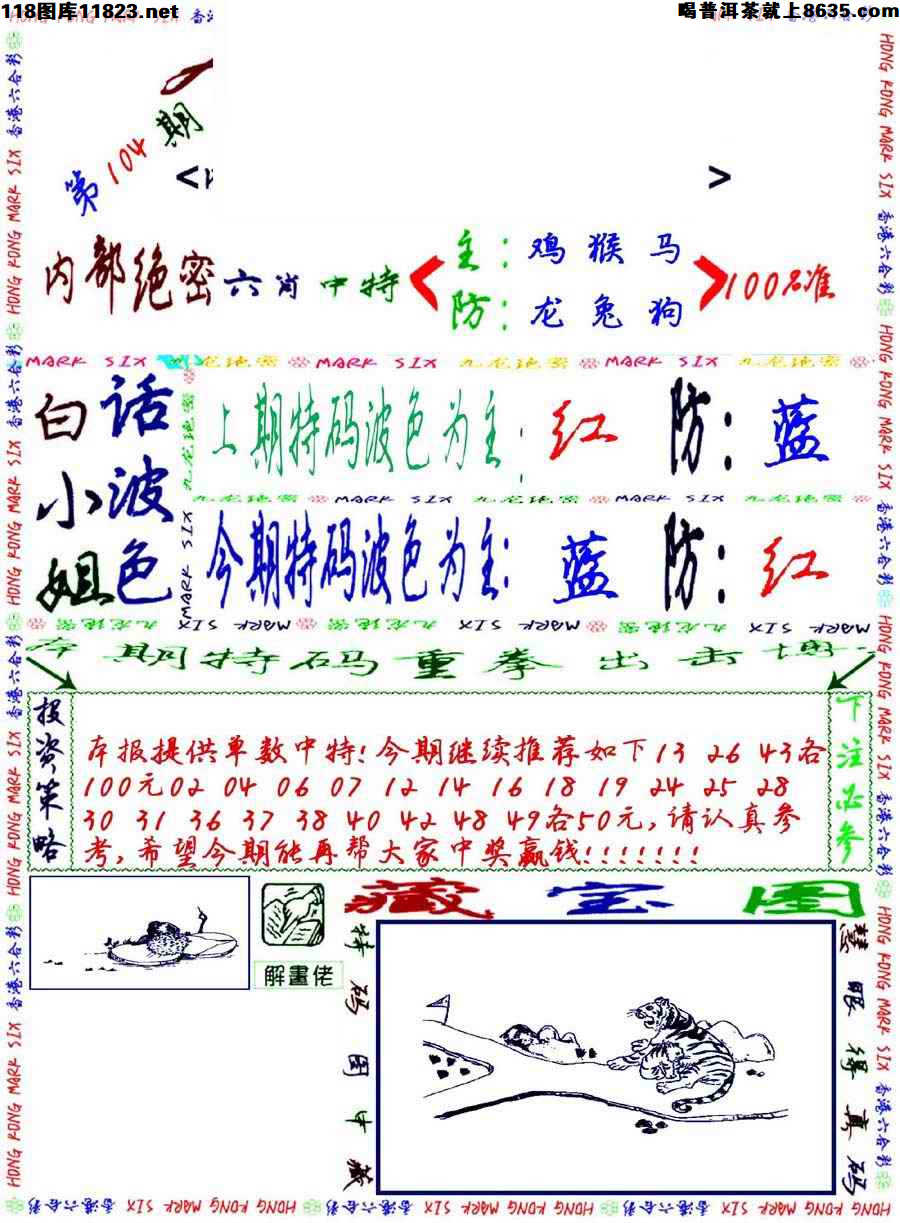 118图库11823.net
喝普洱茶就上8635.com
第104期
<
>
内部绝密六肖中特
主：鸡猴马
防：龙兔狗
100%准
MARK SIX 九龙绝密 MARK SIX 九龙绝密 MARK SIX 九龙绝密
白小姐
话波色
上期特码波色为主：红 防：蓝
九龙绝密 MARK SIX 九龙绝密 MARK SIX 九龙绝密 MARK SIX
今期特码波色为主：蓝 防：红
MARK SIX 九龙绝密 MARK SIX 九龙绝密 MARK SIX 九龙绝密
本期特码重拳出击
投资策略
本报提供单数中特!今期继续推荐如下13 26 43各
100元02 04 06 07 12 14 16 18 19 24 25 28
30 31 36 37 38 40 42 48 49各50元,请认真参
考,希望今期能再帮大家中奖赢钱!!!!!!!
下注必参
解畫佬
藏宝图
特码图中藏
慧眼得真码
HONG KONG MARK SIX 香港六合彩